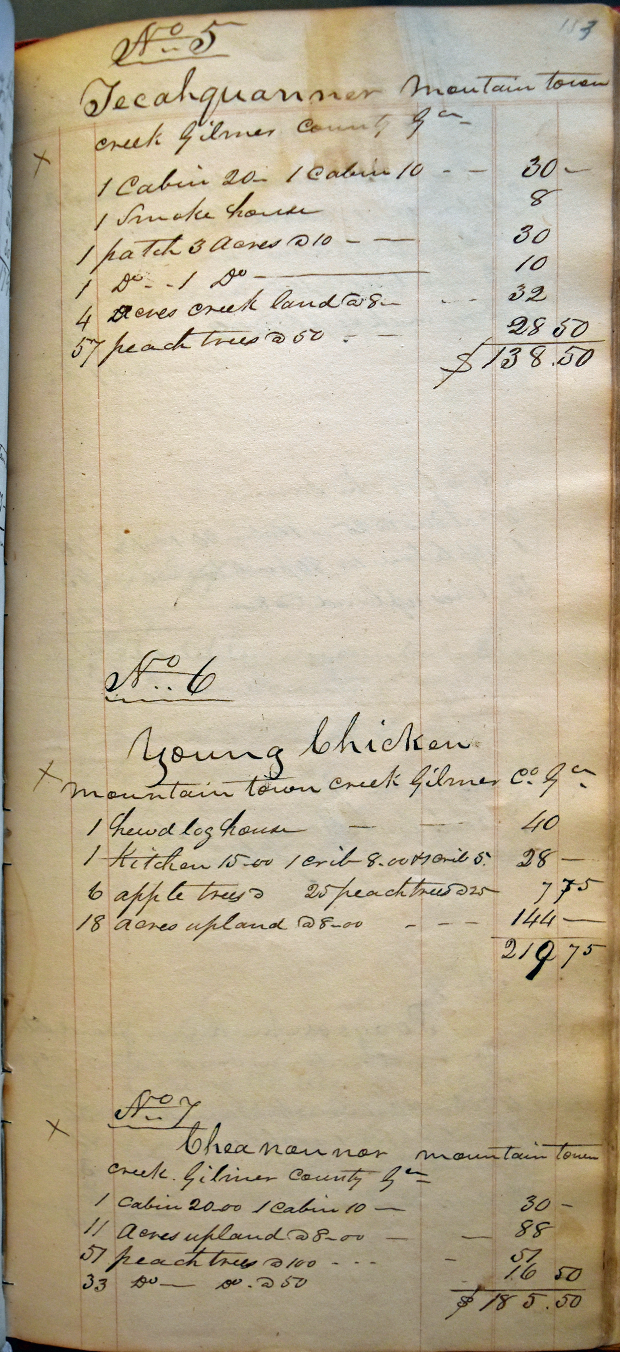 113
No 5
Tecahquanner mountain town
creek Gilmer County Ga
x
1 Cabin 20– 1 Cabin 10 - - 30 –
1 Smoke house 8
1 patch 3 Acres @ 10 - — 30
1 Do - . 1 Do — 10
4 Acres creek land @ 8– - - - 32
57 peach trees @ 50 . - 28 50
$138.50
No 6
Young Chicken
x mountain town creek Gilmer Co Ga
1 hewd log house — — 40
1 Kitchen 15.00 1 crib 8.00 & 1 crib 5. 28 —
6 apple trees @ 25 peach trees @ 25 7 75
18 Acres upland @ 8-00 - - - 144 —
219 75
No 7
x
Cheanounor mountain town
creek. Gilmer County Ga
1 Cabin 20.00 1 Cabin 10 — 30 -
11 Acres upland @ 8-00 - — 88
51 peach trees @ 100 - - - - 51
33 Do — Do. @ 50 16 50
$ 185.50